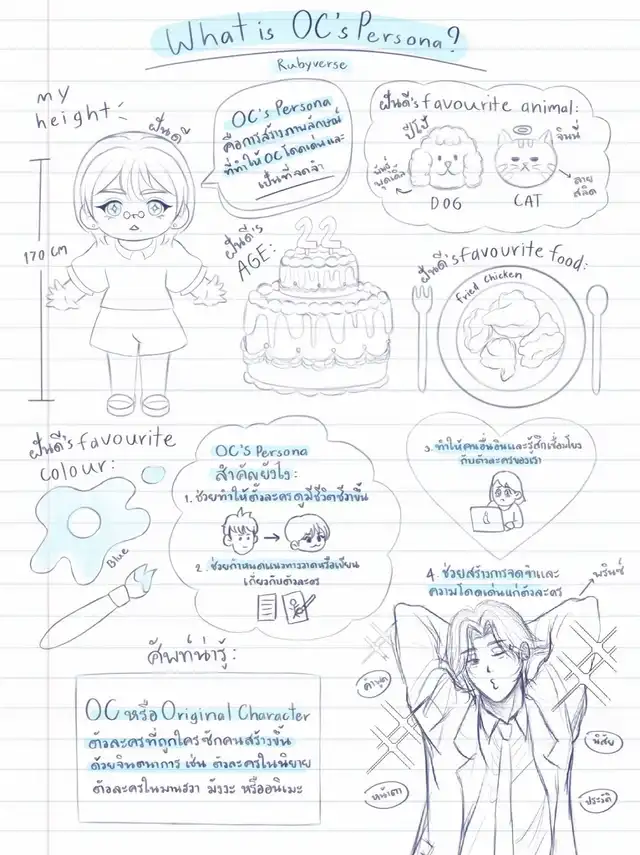 What is OC's Persona?
Rubyverse
my
height:
ฝันดี
170 cm
OC's Persona
คือการสร้างภาพลักษณ์
ที่ทำให้ OC โดดเด่นและ
เป็นที่จดจำ
ฝันดี's favourite animal:
ปีโป้
จินนี่
พันธุ์
พุดเดิ้ล
ลาย
สลิด
DOG
CAT
ฝันดี's
AGE:
22
ฝันดี's favourite food:
fried chicken
ฝันดี's favourite
colour:
Blue
OC's Persona
สำคัญยังไง:
1. ช่วยทำให้ตัวละครดูมีชีวิตชีวาขึ้น
2. ช่วยกำหนดแนวทางวาดหรือเขียน
เกี่ยวกับตัวละคร
3. ทำให้คนอื่นอินและรู้สึกเชื่อมโยง
กับตัวละครของเรา
4. ช่วยสร้างการจดจำและ
ความโดดเด่นแก่ตัวละคร
พรินซ์
คำพูด
นิสัย
หน้าตา
ประวัติ
ศัพท์น่ารู้:
OC หรือ Original Character
ตัวละครที่ถูกใครซักคนสร้างขึ้น
ด้วยจินตนาการ เช่น ตัวละครในนิยาย
ตัวละครในมานฮวา มังงะ หรืออนิเมะ